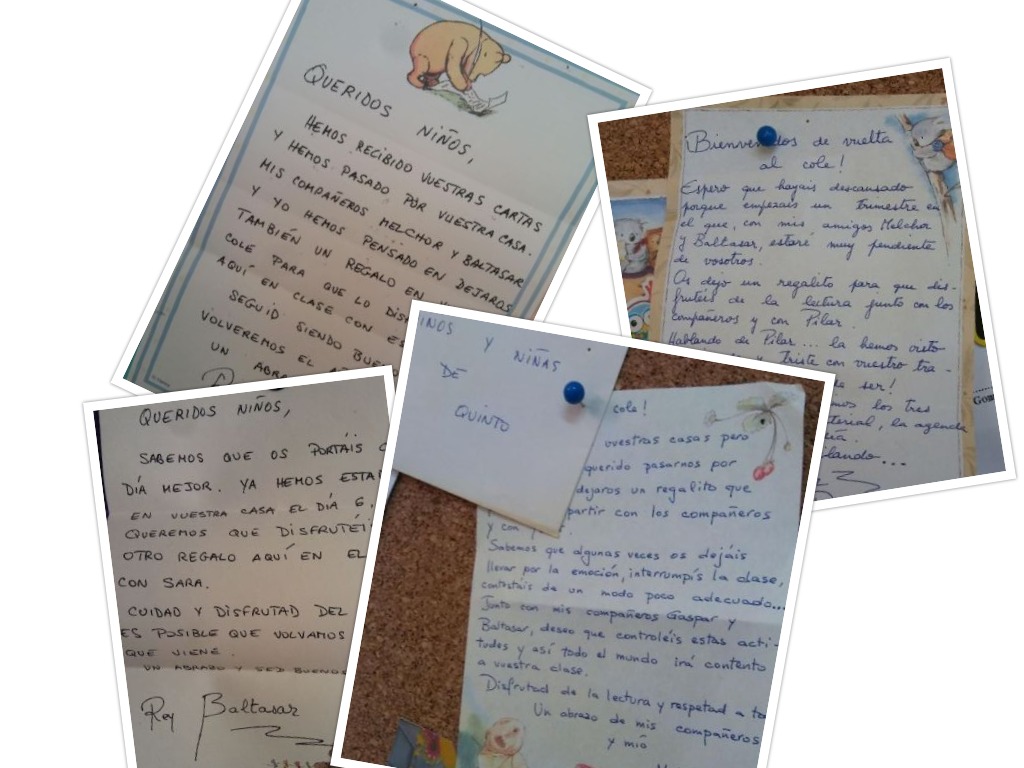 QUERIDOS NIÑOS,
HEMOS RECIBIDO VUESTRAS CARTAS
Y HEMOS PASADO POR VUESTRA CASA.
MIS COMPAÑEROS MELCHOR Y BALTASAR
Y YO HEMOS PENSADO EN DEJAROS
TAMBIÉN UN REGALO EN
COLE PARA QUE LO
AQUÍ EN CLASE CON
SEGUID SIENDO
VOLVEREMOS EL
UN
Bienvenidos de vuelta
al cole!
Espero que hayais descansado
porque empezais un trimestre en
el que, con mis amigos Melchor
y Baltasar, estaré muy pendiente
de vosotros.
Os dejo un regalito para que dis-
frutéis de la lectura junto con los
compañeros y con Pilar.
Hablando de Pilar... la hemos visto
y triste con vuestro tra-
ser!
los tres
la agenda
QUERIDOS NIÑOS,
SABEMOS QUE OS PORTÁIS
DÍA MEJOR. YA HEMOS
EN VUESTRA CASA EL DÍA 6.
QUEREMOS QUE
OTRO REGALO AQUÍ EN EL
CON SARA.
CUIDAD Y DISFRUTAD DEL
ES POSIBLE QUE VOLVAMOS
QUE VIENE.
UN ABRAZO Y SED BUENOS
Rey Baltasar
Y NIÑAS
DE
QUINTO
cole!
vuestras casas pero
querido pasarnos por
dejaros un regalito que
con los compañeros
y con
Sabemos que algunas veces os dejáis
llevar por la emoción, interrumpís la clase,
contestáis de un modo poco adecuado...
Junto con mis compañeros Gaspar y
Baltasar, deseo que controléis estas acti-
tudes y así todo el mundo irá contento
a vuestra clase.
Disfrutad de la lectura y respetad a
Un abrazo de mis compañeros
y mío